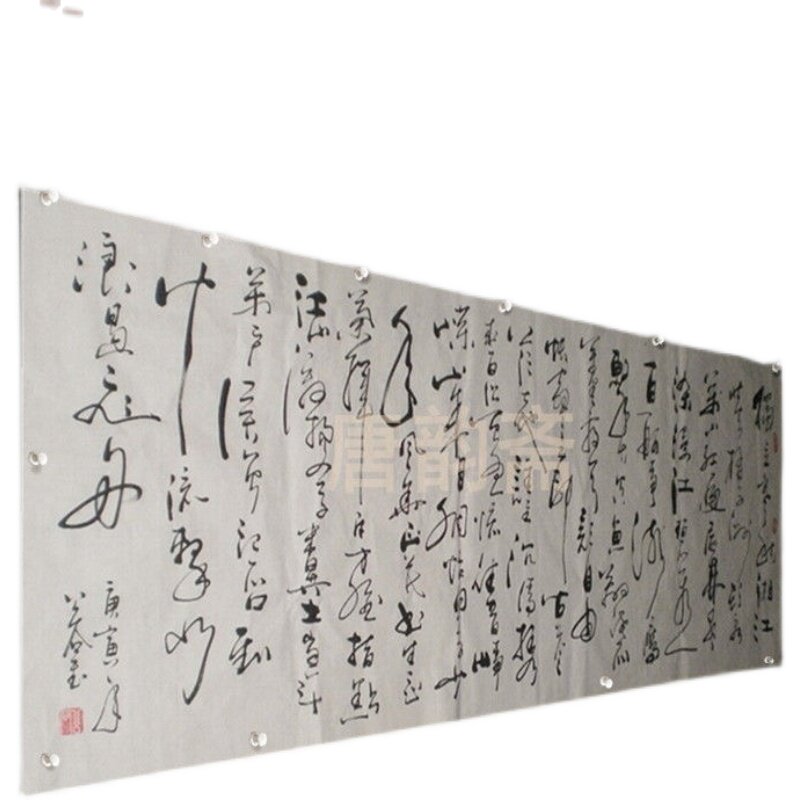 独立寒秋湘江
北去橘子洲头看
万山红遍层林尽
染漫江碧透
百舸争流鹰
击长空鱼翔浅底
万类霜天竞自由
怅寥廓问苍茫
大地谁主沉浮携
来百侣曾游忆往昔峥
嵘岁月稠恰同学少
年风华正茂书生意
气挥斥方遒指点
江山激扬文字粪土当年
万户侯曾记否到
中流击水
浪遏飞舟
庚寅年
唐韵斋